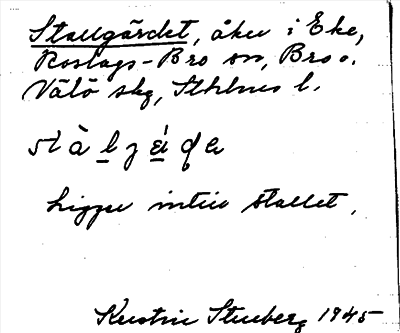 Stallgärdet, åker i Eke,
Roslags-Bro sn, Bro o.
Vätö skg, Sthlms l.
ligger intill stallet.
Kerstin Stenberg 1945